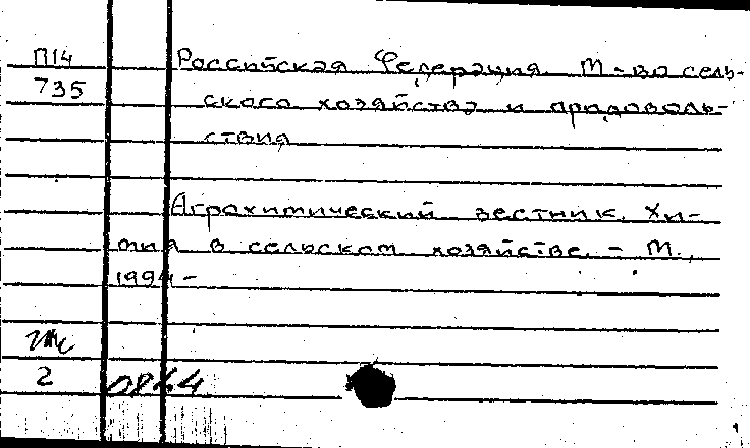 П14 Российская Федерация. М-во сель-
735 ского хозяйства и продоволь-
ствия
Агрохимический вестник. Хи-
мия в сельском хозяйстве. - М.,
1994-
2